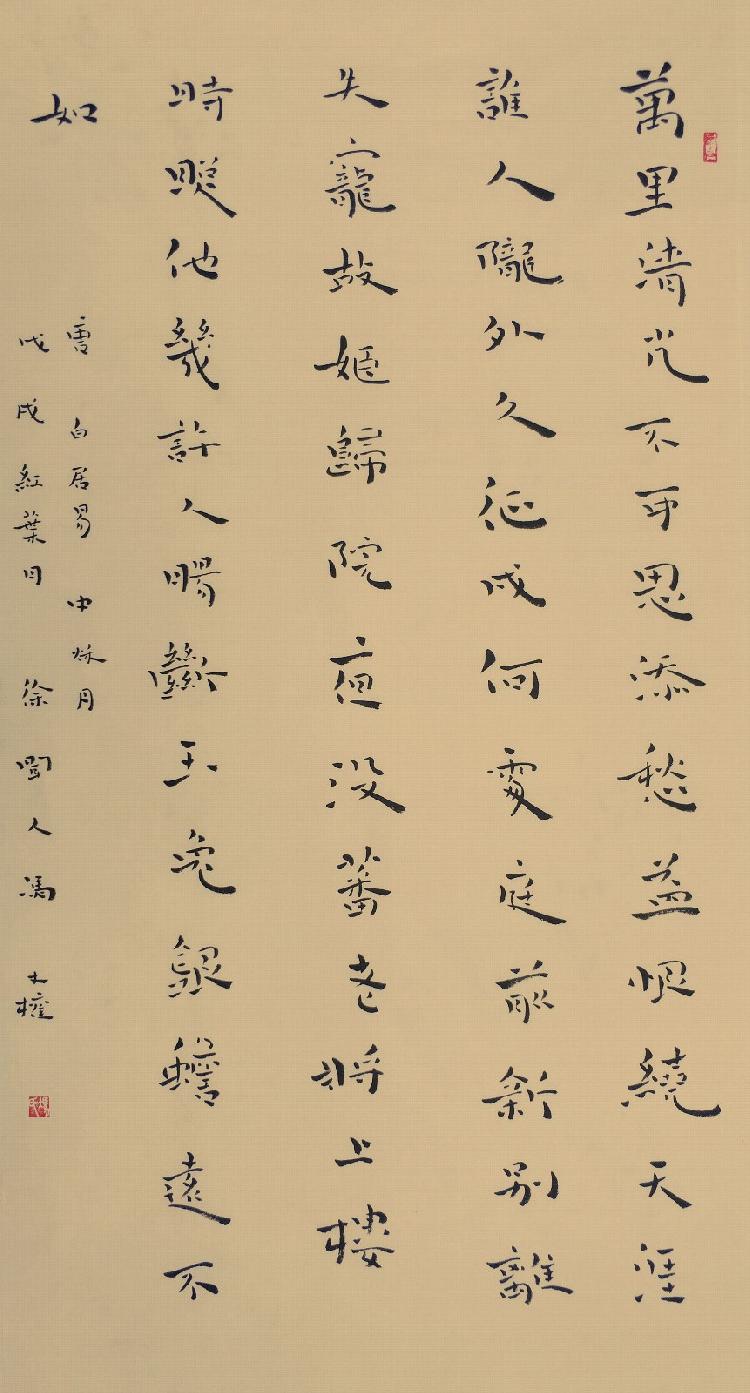 萬里清光不可思添愁益恨繞天涯
誰人隴外久征戍何處庭前新別離
失寵故姬歸院夜沒蕃老將上樓
時照他幾許人腸斷玉兔銀蟾遠不
如
唐 白居易 中秋月
戊戌紅葉月 徐聞人馮 權